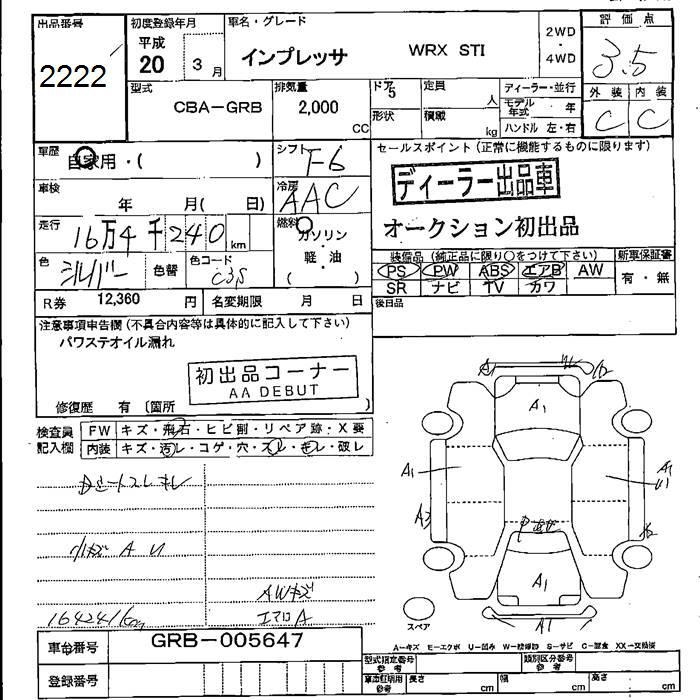 出品番号
2222
初度登録年月
平成
20 3 月
車名・グレード
インプレッサ WRX STI
2WD
・
4WD
評価点
3.5
外装 内装
C C
型式
CBA-GRB
排気量
2,000
CC
ドア
5
形状
定員
人
積載
kg
ディーラー・並行
モデル年式 年
ハンドル 左・右
車歴
自家用・( )
シフト
F6
車検
年 月( 日)
冷房
AAC
走行
16万4千240 km
燃料
ガソリン
・
軽・油
( )
色
シルバー
色替
色コード
C3S
R券 12,360 円
名変期限 月 日
セールスポイント(正常に機能するものに限ります)
ディーラー出品車
オークション初出品
装備品(純正品に限り○をつけて下さい)
PS PW ABS エアB AW
SR ナビ TV カワ
新車保証書
有・無
後日品
注意事項申告欄(不具合内容等は具体的に記入して下さい)
パワステオイル漏れ
初出品コーナー
AA DEBUT
修復歴 有 〔箇所 〕
検査員
記入欄
FW キズ・飛石・ヒビ割・リペア跡・X要
内装 キズ・汚レ・コゲ・穴・スレ・キレ・破レ
小キズ A U
AWキズ
164241km
エアロA
A1
A1
A1
A1
U1
A3
A1
A1
スペア
A-キズ E-エクボ U-凹み W-補修跡 S-サビ C-腐食 XX-交換済
車台番号 GRB-005647
登録番号
型式指定番号
参考
類別区分番号
参考
車庫証明用
参考
長さ cm 幅 cm 高さ cm